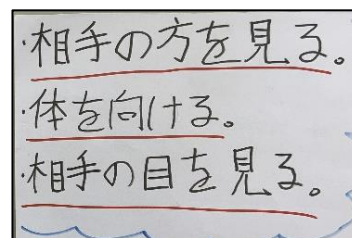 ・相手の方を見る。
・体を向ける。
・相手の目を見る。